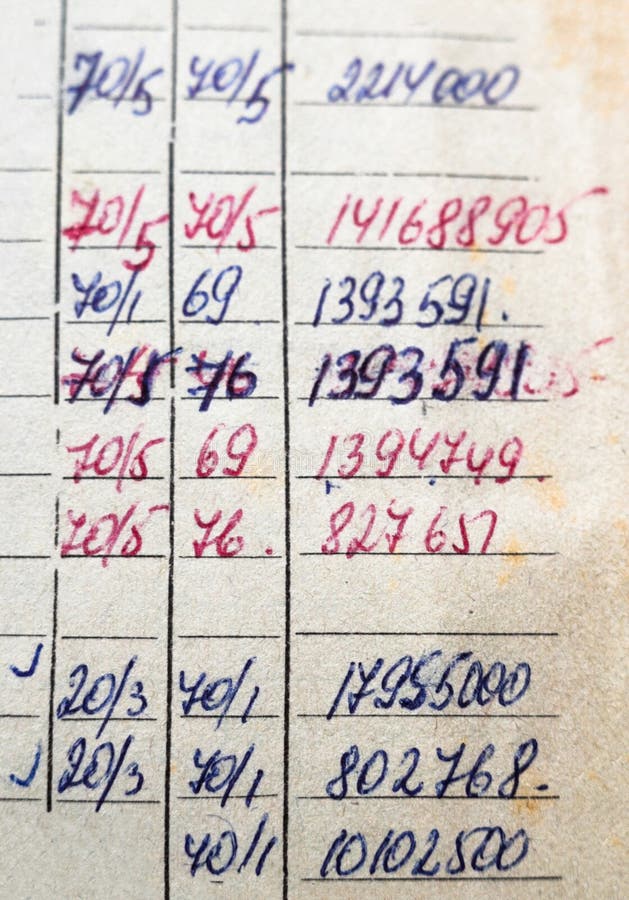 70/5 70/5 2214000
70/5 70/5 141688905
70/1 69 1393591.
70/5 76 1393591
70/5 69 1394749.
70/5 76. 827651
20/3 70/1 17955000
20/3 70/1 802768.
70/1 10102500